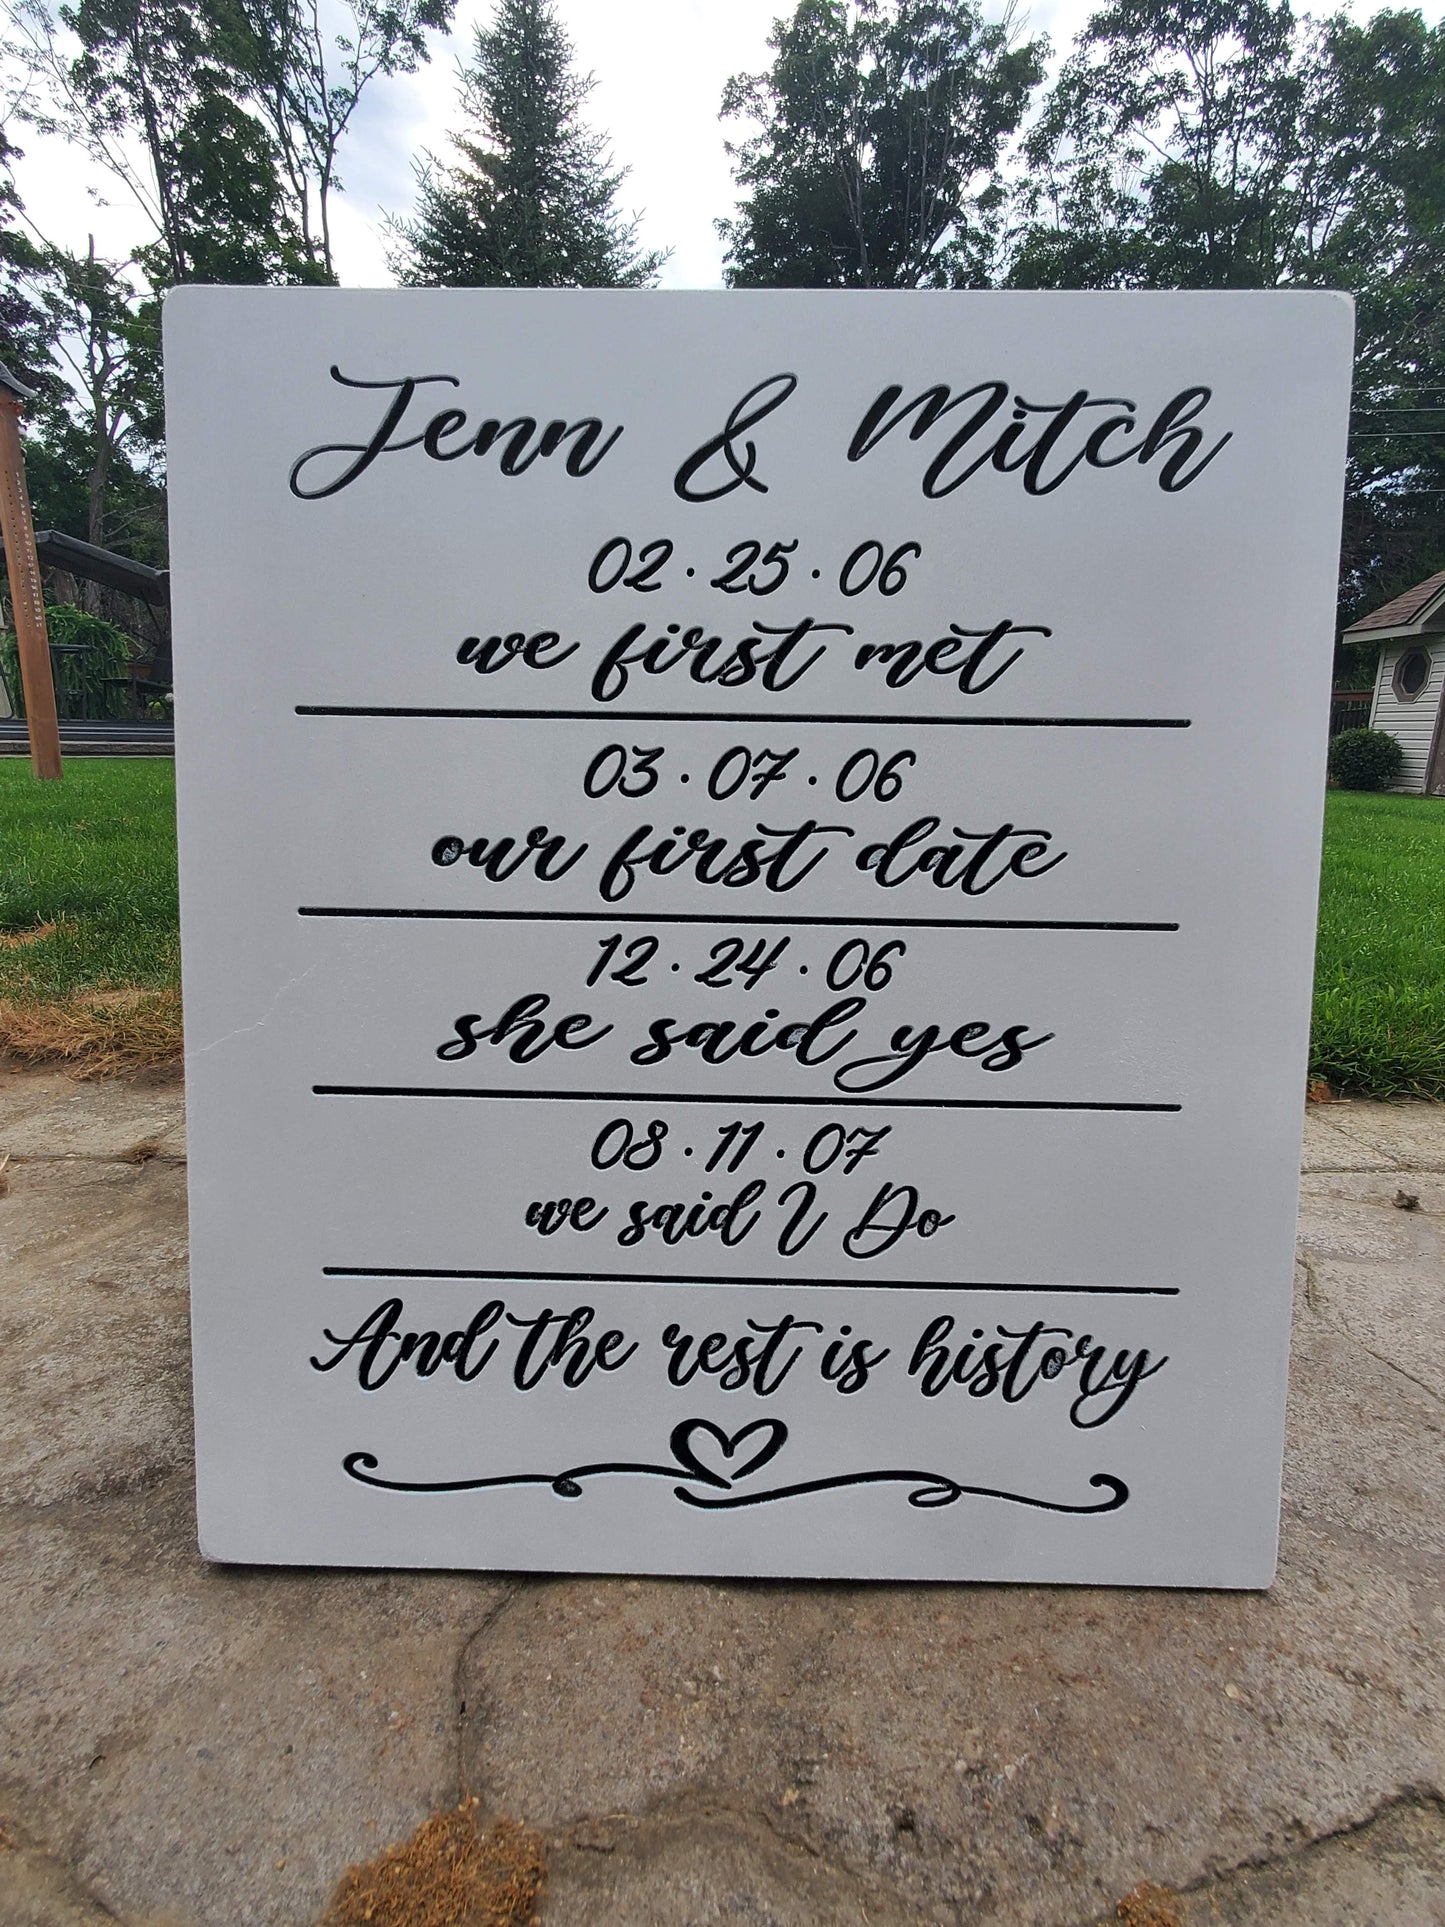 Jenn & Mitch
02·25·06
we first met
03·07·06
our first date
12·24·06
she said yes
08·11·07
we said I Do
And the rest is history